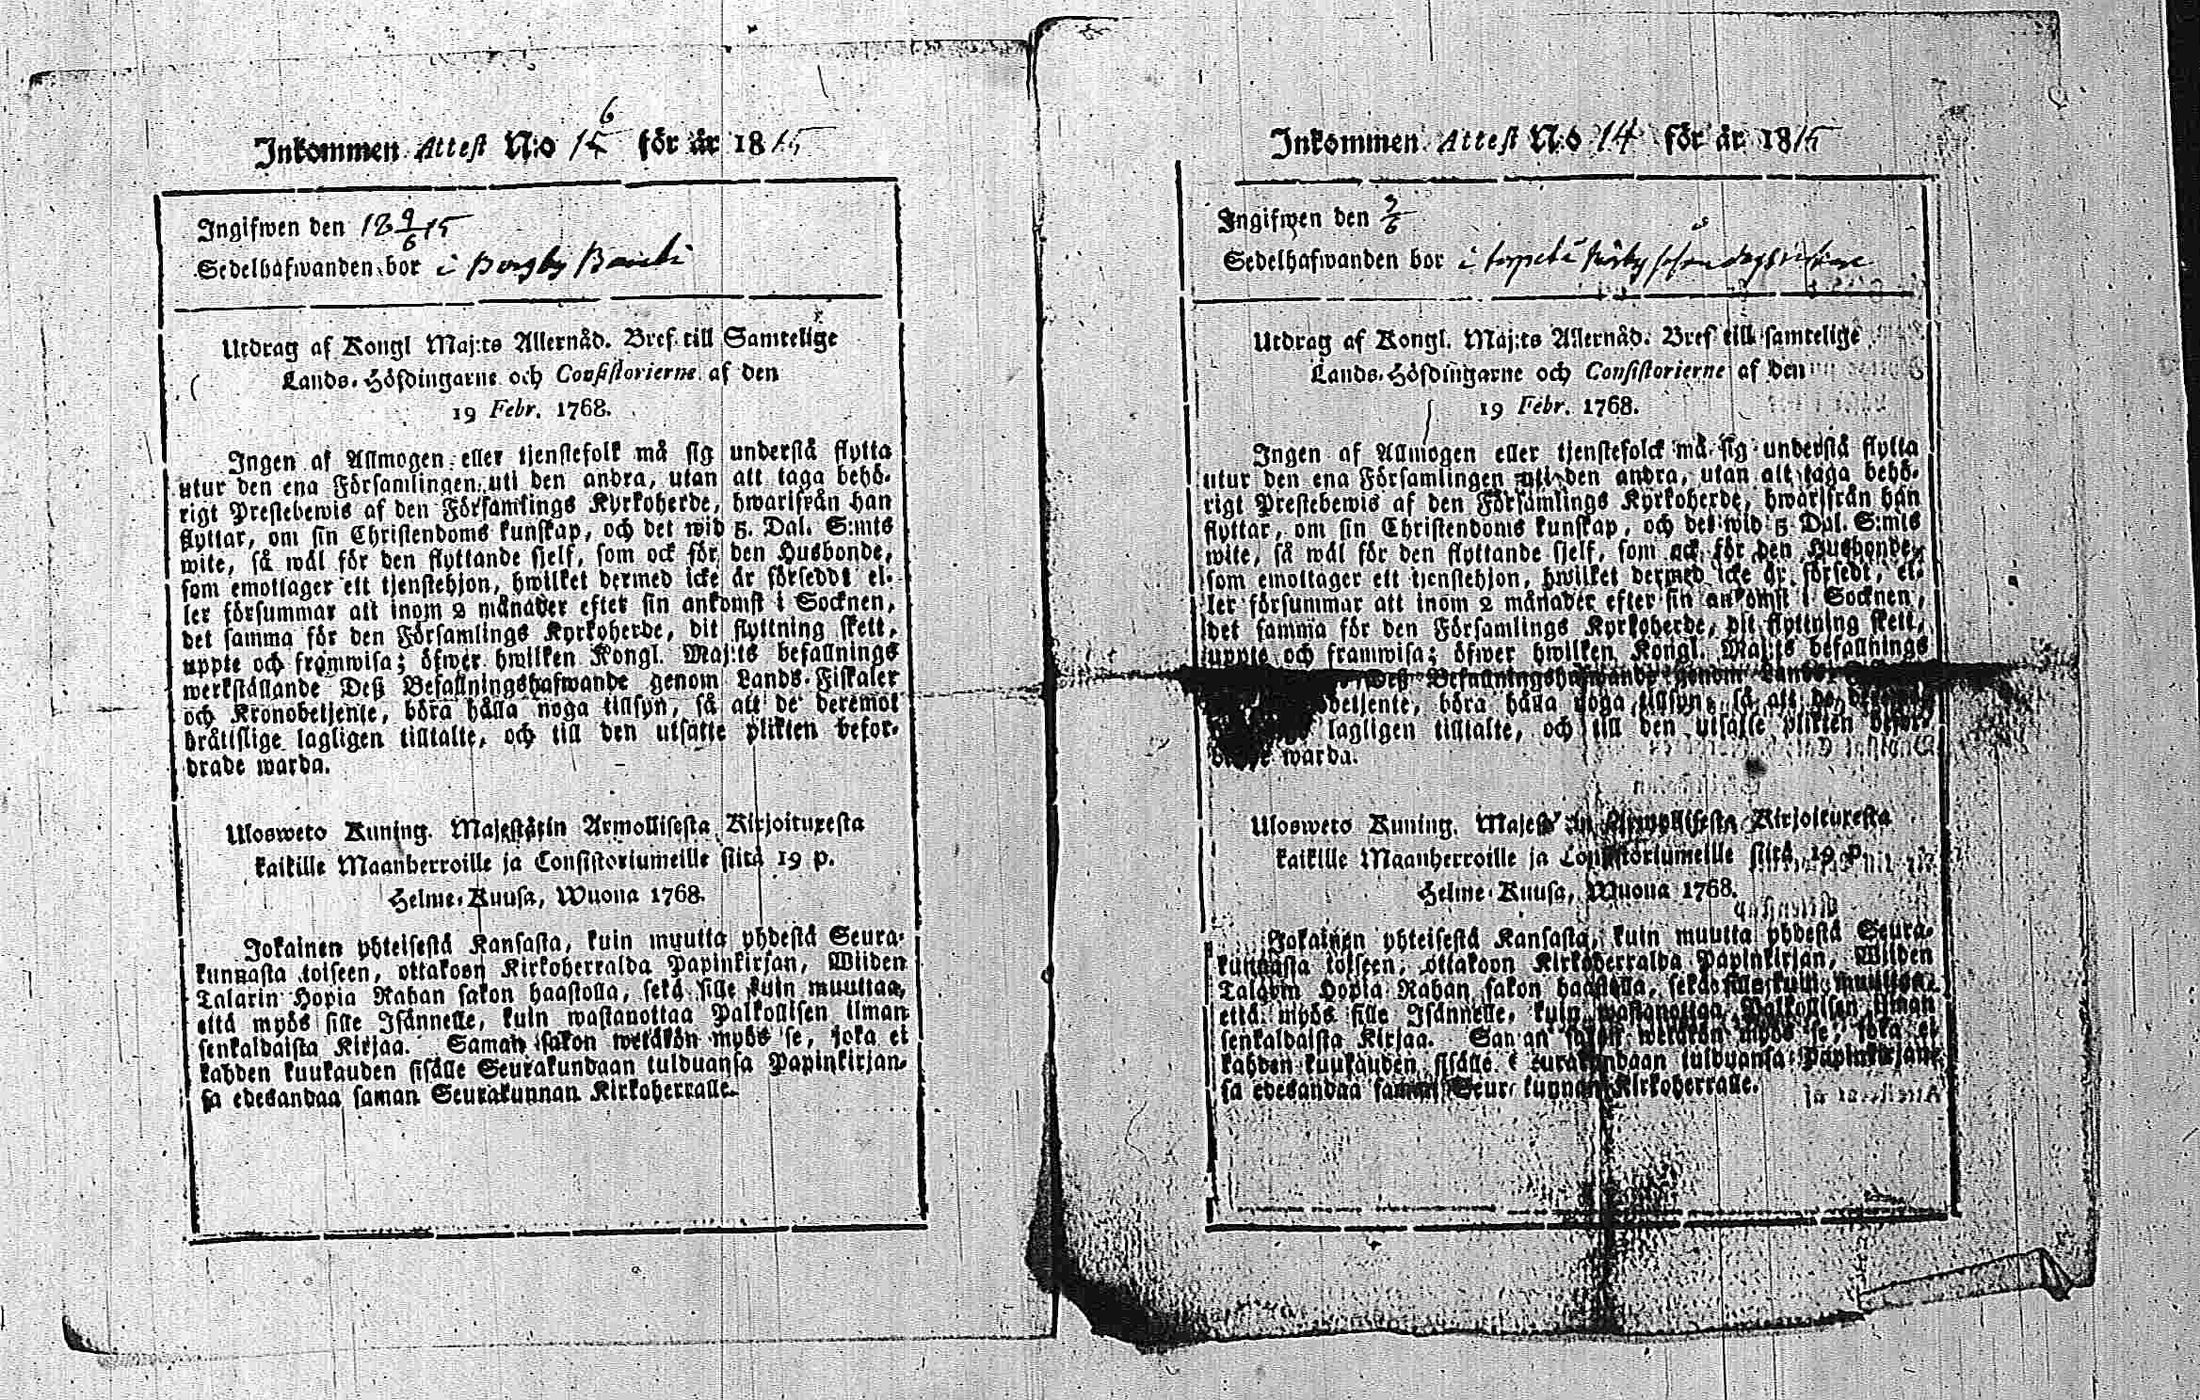 Inkommen Attest N:o 15 6 för år 1815
Ingifwen den 18 9/6 15
Sedelhafwanden bor i
Utdrag af Kongl Maj:ts Allernåd. Bref till Samtelige
Lands-Höfdingarne och Consistorierne af den
19 Febr. 1768.
Ingen af Allmogen eller tjenstefolk må sig understå flytta
utur den ena Församlingen uti den andra, utan att taga behö-
rigt Prestebewis af den Församlings Kyrkoherde, hwarifrån han
flyttar, om sin Christendoms kunskap, och det wid 5. Dal. S:mts
wite, så wäl för den flyttande sjelf, som ock för den Husbonde,
som emottager ett tjenstehjon, hwilket dermed icke är förseddt el-
ler försummar att inom 2 månader efter sin ankomst i Socknen,
det samma för den Församlings Kyrkoherde, dit flyttning skett,
uppte och framwisa; öfwer hwilken Kongl. Maj:ts befallnings
werkställande Deß Befallningshafwande genom Lands-Fiskaler
och Kronobetjente, böra hålla noga tillsyn, så att de deremot
bråttslige lagligen tilltalte, och till den utsatte plikten befor-
drade warda.
Ulosweto Kuning. Majestätin Armollisesta Kirjoituxesta
kaikille Maanherroille ja Consistoriumeille siitä 19 p.
Helme-Kuusa, Wuona 1768.
Jokainen yhteisestä Kansasta, kuin muutta yhdestä Seura-
kunnasta toiseen, ottakoon Kirkoherralda Papinkirjan, Wiiden
Talarin Hopia Rahan sakon haastolla, sekä sille kuin muuttaa,
että myös sille Isännelle, kuin wastanottaa Palkollisen ilman
senkaldaista Kirjaa. Saman sakon wetäkön myös se, joka ei
kahden kuukauden sisälle Seurakundaan tulduansa Papinkirjan-
sa edesandaa saman Seurakunnan Kirkoherralle.
Inkommen Attest N:o 14 för år 1815
Ingifwen den
Sedelhafwanden bor i
Utdrag af Kongl. Maj:ts Allernåd. Bref till samtelige
Lands-Höfdingarne och Consistorierne af den
19 Febr. 1768.
Ingen af Allmogen eller tjenstefolck må sig understå flytta
utur den ena Församlingen uti den andra, utan att taga behö-
rigt Prestebewis af den Församlings Kyrkoherde, hwarifrån han
flyttar, om sin Christendoms kunskap, och det wid 5 Dal. S:mts
wite, så wäl för den flyttande sjelf, som ock för den Husbonde,
som emottager ett tjenstehjon, hwilket dermed icke är försedt, el-
ler försummar att inom 2 månader efter sin ankomst i Socknen,
det samma för den Församlings Kyrkoherde, dit flyttning skett,
uppte och framwisa; öfwer hwilken Kongl. Maj:ts befallnings
Deß Befallningshafwande genom Lands-
betjente, böra hålla noga tillsyn, så att de
lagligen tilltalte, och till den utsatte plikten befor-
warda.
Ulosweto Kuning. Armollisesta Kirjoituxesta
kaikille Maanherroille ja Consistoriumeille siitä 19 p.
Helme-Kuusa, Wuona 1768.
Jokainen yhteisestä Kansasta, kuin muutta yhdestä Seura-
kunnasta toiseen, ottakoon Kirkoherralda Papinkirjan, Wiiden
Talarin Hopia Rahan sakon haastolla, sekä sille kuin muuttaa,
että myös sille Isännelle, kuin wastanottaa Palkollisen ilman
senkaldaista Kirjaa. Saman sakon wetäkön myös se, joka ei
kahden kuukauden sisälle Seurakundaan tulduansa Papinkirjan-
sa edesandaa saman Seurakunnan Kirkoherralle.